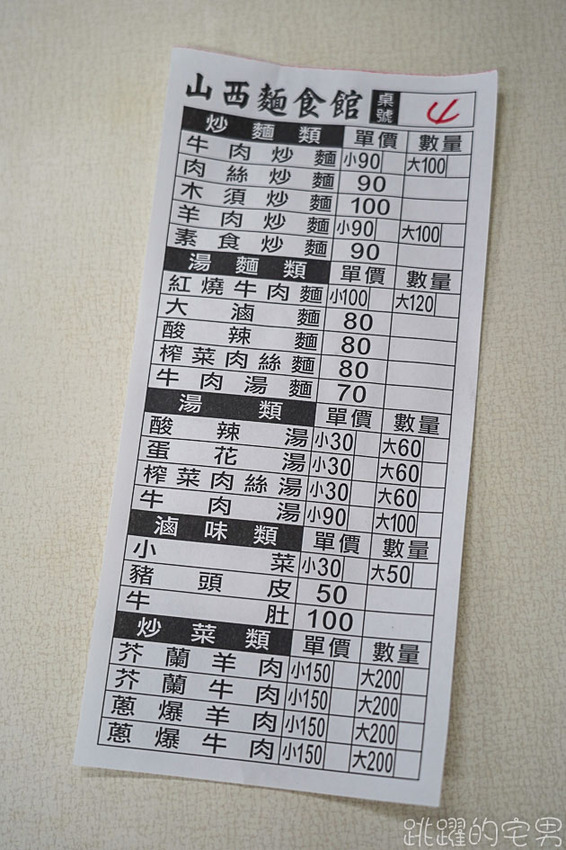 山西麵食館 桌號 4
炒麵類 單價 數量
牛肉炒麵 小90 大100
肉絲炒麵 90
木須炒麵 100
羊肉炒麵 小90 大100
素食炒麵 90
湯麵類 單價 數量
紅燒牛肉麵 小100 大120
大滷麵 80
酸辣麵 80
榨菜肉絲麵 80
牛肉湯麵 70
湯類 單價 數量
酸辣湯 小30 大60
蛋花湯 小30 大60
榨菜肉絲湯 小30 大60
牛肉湯 小90 大100
滷味類 單價 數量
小菜 小30 大50
豬頭皮 50
牛肚 100
炒菜類 單價 數量
芥蘭羊肉 小150 大200
芥蘭牛肉 小150 大200
蔥爆羊肉 小150 大200
蔥爆牛肉 小150 大200
跳躍的宅男